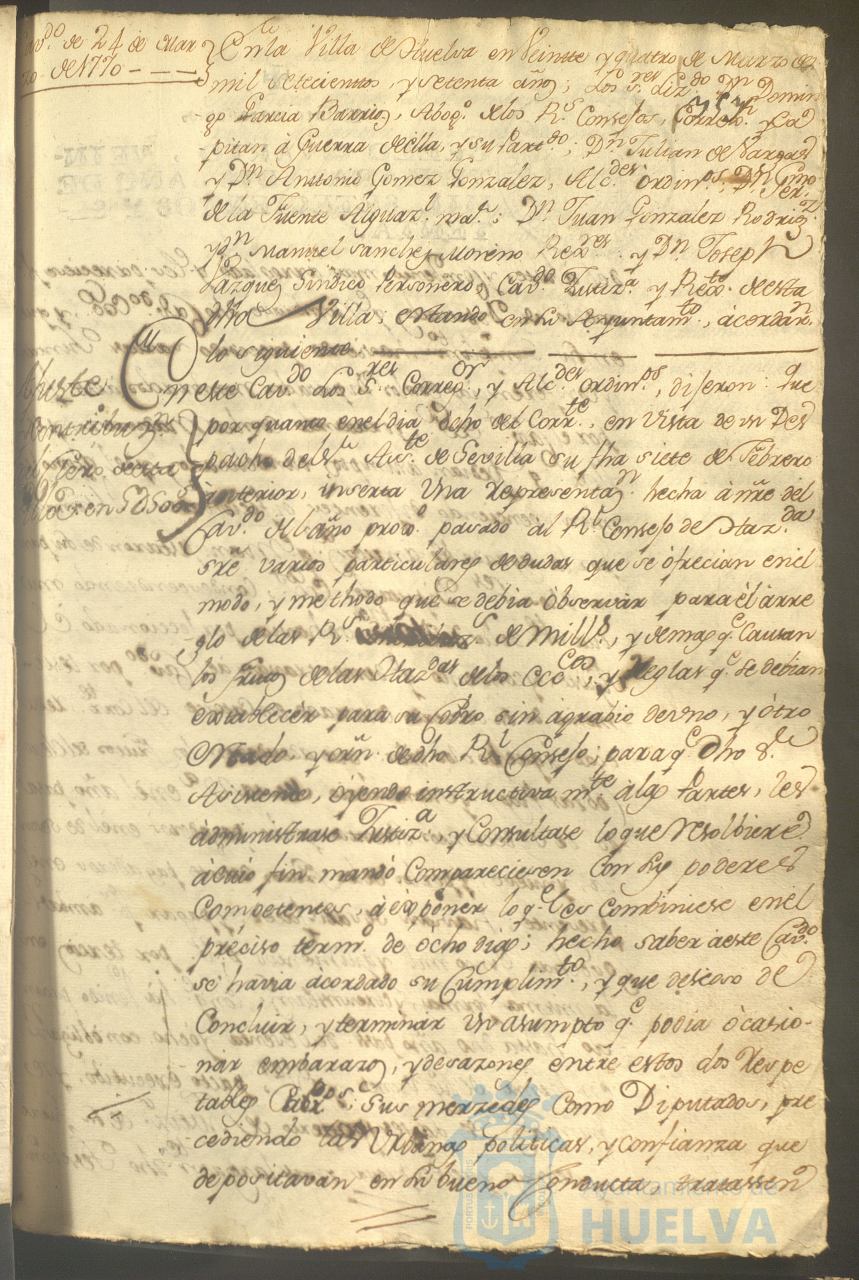 Cav.do de 24 de Mar
zo de 1770 - - -
En la Villa de Huelva en Veinte y quatro de Marzo de
mil setecientos, y setenta años; Los S.res Liz.do D.n Domin
go Garcia Barrios, Abog.o de los R.s Consejos, Correx.or y Ca
pitan á Guerra de ella, y su Part.do; D.n Julian de Vargas
y D.n Antonio Gomez Gonzalez, Alc.des ordin.os D.n Fer
de la Fuente Alguaz.l ma.r; D.n Juan Gonzalez Rodrig.z
y D.n Manuel Sanchez Moreno Rex.res y D.n Joseph
Vazquez Sindico Personero, Cav.do Justiz.a y Rex.to de esta
dha Villa; estando en su Ayuntam.to, acordar.n
lo siguiente
En este Cav.do los S.res Correx.or, y Alc.des ordin.os, dijeron: Que
por quanto en el dia ocho del Corr.te, en Vista de un Des
pacho del S.r Asis.te de Sevilla su fha siete de Febrero
anterior, inserta Una Representaz.n hecha á nre del
Cav.do el año prox.o pasado al R.l Consejo de Haz.da
sre varios particulares de dudas que se ofrecian en el
modo, y methodo que se debia observar para el arre
glo de las R.s de Mill.s, y demas q.e Causan
los frutos de las Haz.das de los ecc.cos, y Reglas q.e se debian
establecer para su Cobro sin agravio de uno, y otro
Estado, y orn de dho R.l Consejo; para q.e dho S.r
Asistente, oyendo instructivam.te á las Partes, les
administrase Justiz.a, y Consultase lo que resolbiere
á cuio fin mandó Compareciesen con sus poderes
Competentes, á exponer lo q.e les combiniese en el
preciso term.o de ocho dias; hecho saber á este Cav.do
se havia acordado su Cumplim.to, y que deseoso de
Concluir, y terminar un asumpto q.e podia ocasio-
nar embarazos, y desazones entre estos dos Respe
tables sus merzedes Como Diputados, pre
cediendo las Urbanas politicas, y confianza que
depositavan en su buena Conducta, tratassen
Ayuntamiento de
HUELVA